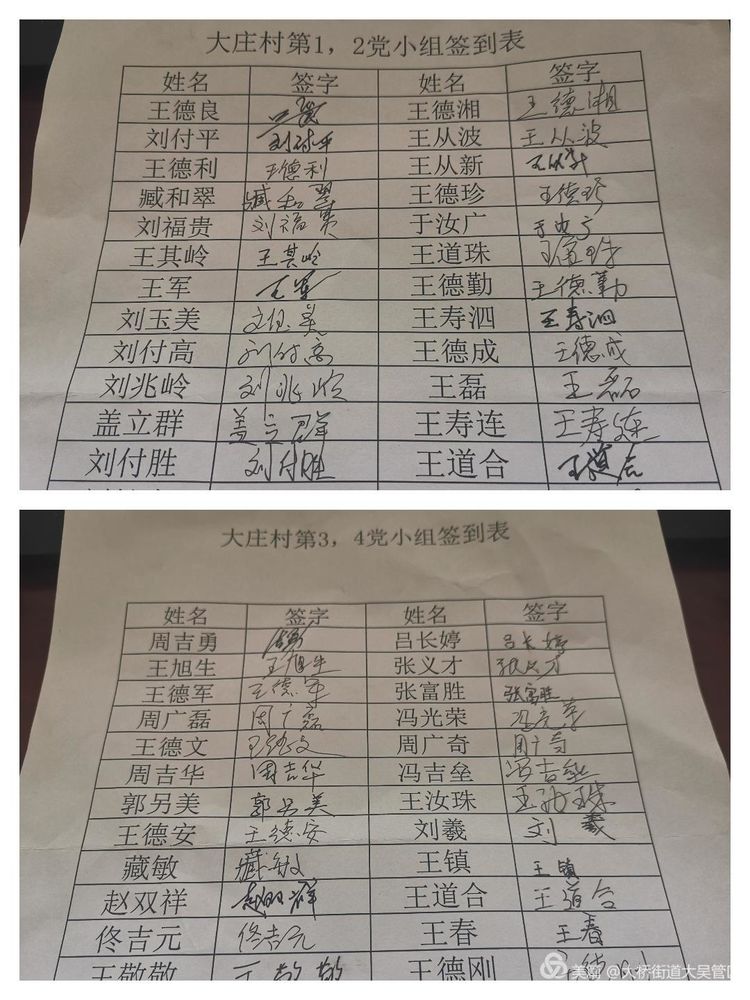 大庄村第1，2党小组签到表
姓名 签字 姓名 签字
王德良 王德湘 王德湘
刘付平 刘付平 王从波 王从波
王德利 王德利 王从新 王从新
臧和翠 臧和翠 王德珍 王德珍
刘福贵 刘福贵 于汝广 于汝广
王其岭 王其岭 王道珠 王道珠
王军 王军 王德勤 王德勤
刘玉美 刘玉美 王寿泗 王寿泗
刘付高 刘付高 王德成 王德成
刘兆岭 刘兆岭 王磊 王磊
盖立群 盖立群 王寿连 王寿连
刘付胜 刘付胜 王道合 王道合
大庄村第3，4党小组签到表
姓名 签字 姓名 签字
周吉勇 吕长婷 吕长婷
王旭生 王旭生 张义才 张义才
王德军 王德军 张富胜 张富胜
周广磊 周广磊 冯光荣 冯光荣
王德文 王德文 周广奇 周广奇
周吉华 周吉华 冯吉垒 冯吉垒
郭另美 郭另美 王汝珠 王汝珠
王德安 王德安 刘羲 刘羲
藏敏 藏敏 王镇 王镇
赵双祥 赵双祥 王道合 王道合
佟吉元 佟吉元 王春 王春
王敬敬 王敬敬 王德刚
美篇 @大桥街道大吴管区